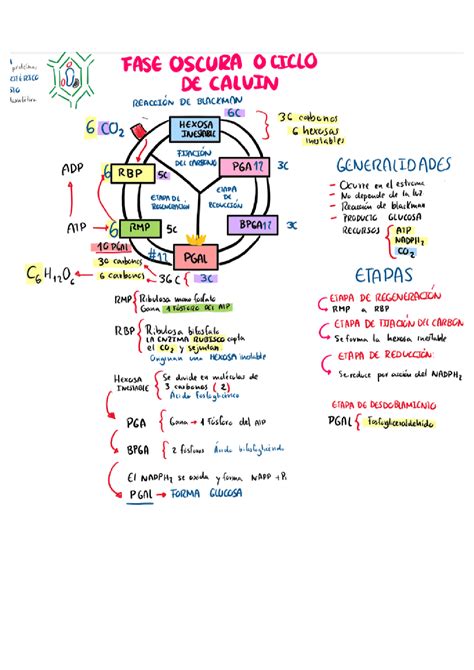 FASE OSCURA O CICLO
DE CALVIN
REACCIÓN DE BLACKMAN
6C
6 CO2
HEXOSA
INESTABLE
36 carbonos
6 hexosas
inestables
FIJACIÓN
DEL CARBONO
ADP
6 RBP 5C
PGA 12 3C
ETAPA DE
REGENERACIÓN
ETAPA
DE
REDUCCIÓN
ATP
6 RMP 5C
BPGA 12 3C
10 PGAL
#12
PGAL
30 carbonos
C6H12O6
6 carbonos
36C
3C
GENERALIDADES
- Ocurre en el estroma
- No depende de la luz
- Reacción de blackman
- PRODUCTO GLUCOSA
RECURSOS
ATP
NADPH2
CO2
ETAPAS
ETAPA DE REGENERACIÓN
RMP a RBP
ETAPA DE FIJACIÓN DEL CARBÓN
Se forma la hexosa inestable
ETAPA DE REDUCCIÓN:
Se reduce por acción del NADPH2
ETAPA DE DESDOBLAMIENTO
PGAL { Fosfogliceraldehido
RMP { Ribulosa mono fosfato
Gana 1 FÓSFORO DEL ATP
RBP { Ribulosa bifosfato
LA ENZIMA RUBISCO capta
el CO2 y se juntan.
Originan una HEXOSA inestable
HEXOSA
INESTABLE
Se divide en moléculas de
3 carbonos (2)
Ácido fosfoglicérico
PGA { Gana → 1 fósforo del ATP
BPGA { 2 fósforos Ácido bifosfoglicérido
El NADPH2 se oxida y forma NADP + Pi
PGAL → FORMA GLUCOSA